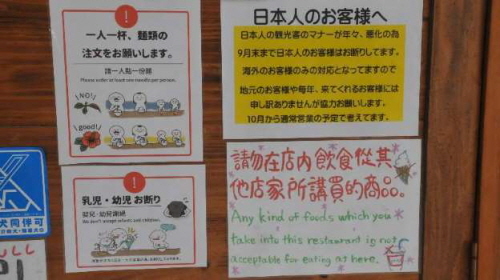 一人一杯、麺類の
注文をお願いします。
請一人點一份麵
Please order at least one noodle per person.
NO!
good!
乳児・幼児 お断り
嬰兒・幼兒謝絕
We don't accept infants and children.
日本人のお客様へ
日本人の観光客のマナーが年々、悪化の為
9月末まで日本人のお客様はお断りしてます。
海外のお客様のみの対応となってますので
地元のお客様や毎年、来てくれるお客様には
申し訳ありませんが協力お願いします。
10月から通常営業の予定で考えてます。
請勿在店内飲食從其
他店家所購買的商品。
Any kind of foods which you
take into this restaurant is not
acceptable for eating at here.
犬同伴可